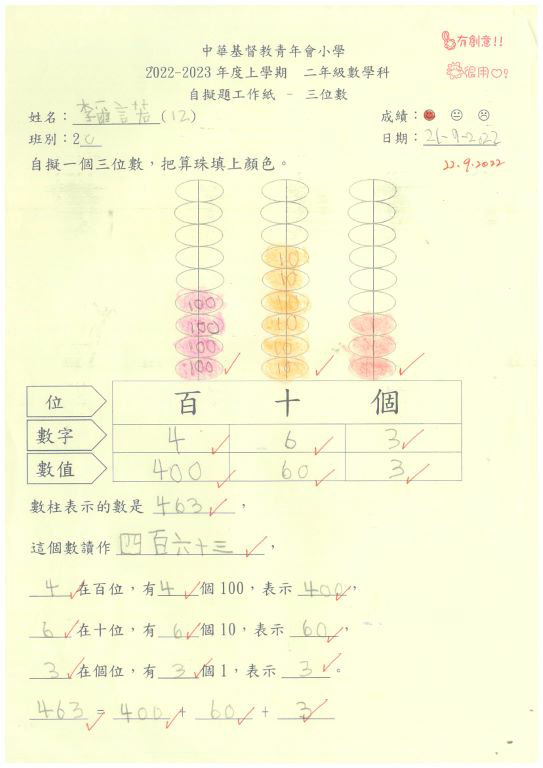 有創意!!
很用♡!
中華基督教青年會小學
2022-2023 年度上學期 二年級數學科
自擬題工作紙 - 三位數
姓名: 李 言 (12)
成績:
班別:2C
日期:21-9-2022
22.9.2022
自擬一個三位數,把算珠填上顏色。
10
10
100 10
100 10
100 10
100 10
位 百 十 個
數字 4 6 3
數值 400 60 3
數柱表示的數是 463 ,
這個數讀作 四百六十三 ,
4 在百位,有 4 個 100,表示 400,
6 在十位,有 6 個 10,表示 60,
3 在個位,有 3 個 1,表示 3 。
463 = 400 + 60 + 3